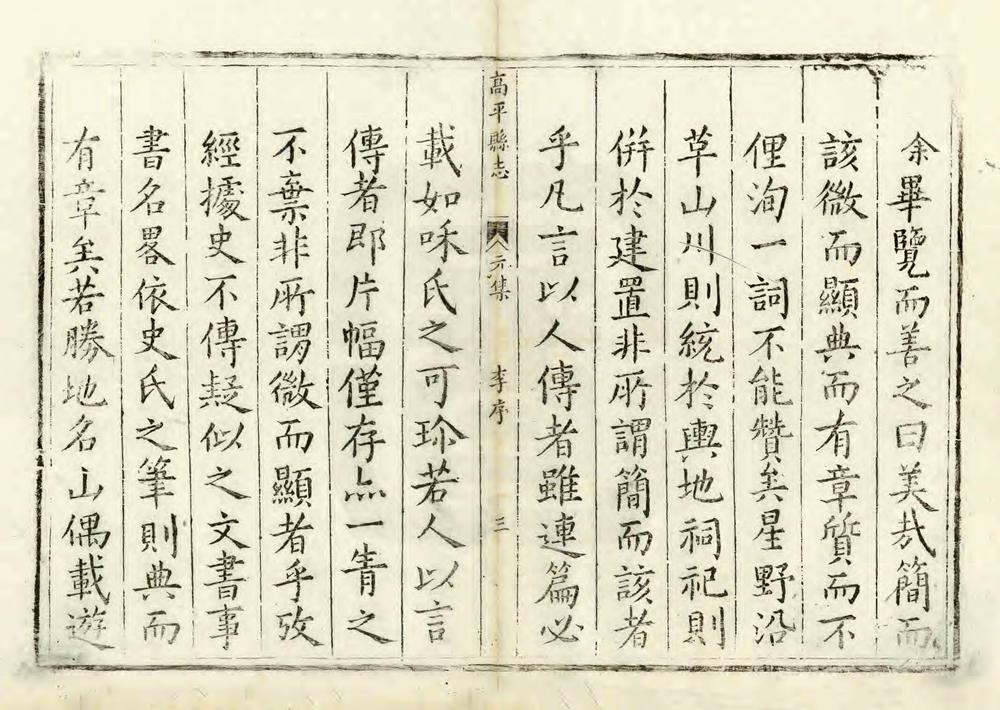 余畢覽而善之曰美哉簡而
該微而顯典而有章質而不
俚洵一詞不能贊矣星野沿
草山川則統於輿地祠祀則
併於建置非所謂簡而該者
乎凡言以人傳者雖連篇必
高平縣志 元集 李序 三
載如咊氏之可珎若人以言
傳者即片幅僅存亦一青之
不棄非所謂微而顯者乎攷
經據史不傳疑似之文書事
書名畧依史氏之筆則典而
有章矣若勝地名山偶載遊